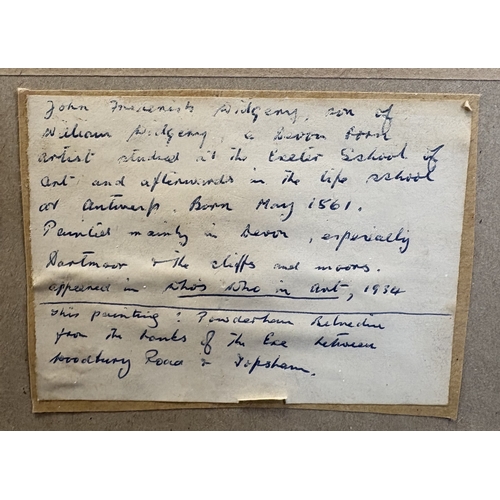 John Frederick Widgery, son of
William Widgery, a Devon born
artist studied at the Exeter School of
Art and afterwards in the life school
at Antwerp. Born May 1861.
Painted mainly in Devon, especially
Dartmoor & the cliffs and moors.
appeared in Who's Who in Art, 1934
This painting: Powderham Belvedere
from the banks of the Exe between
Woodbury Road & Topsham.